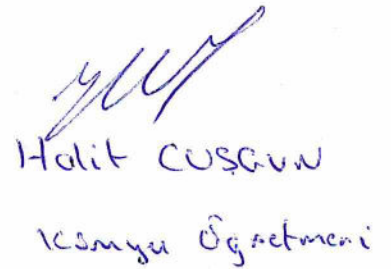 Halit CUSGUN
Kimya Öğretmeni